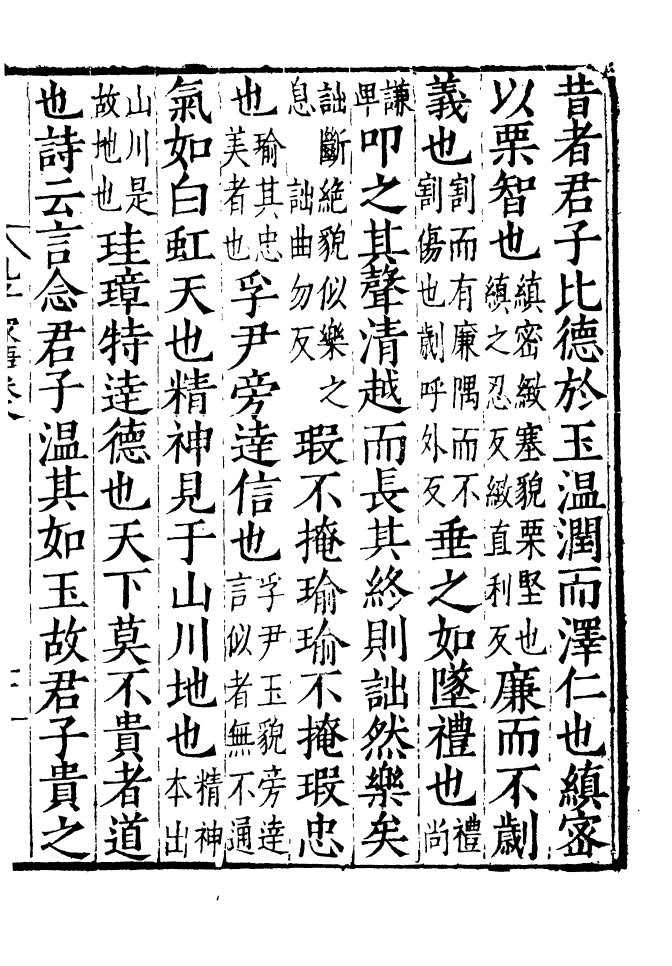 昔者君子比德於玉温潤而澤仁也縝密
以栗智也縝密緻塞貌栗堅也縝之忍反緻直利反廉而不劌
義也割而有廉隅而不割傷也劌呼外反垂之如墜禮也禮尚
謙卑叩之其聲清越而長其終則詘然樂矣
詘斷絶貌似樂之息詘曲勿反瑕不掩瑜瑜不掩瑕忠
也瑜其忠美者也孚尹旁達信也孚尹玉貌旁達言似者無不通
氣如白虹天也精神見于山川地也精神本出
山川是故地也珪璋特達德也天下莫不貴者道
也詩云言念君子温其如玉故君子貴之